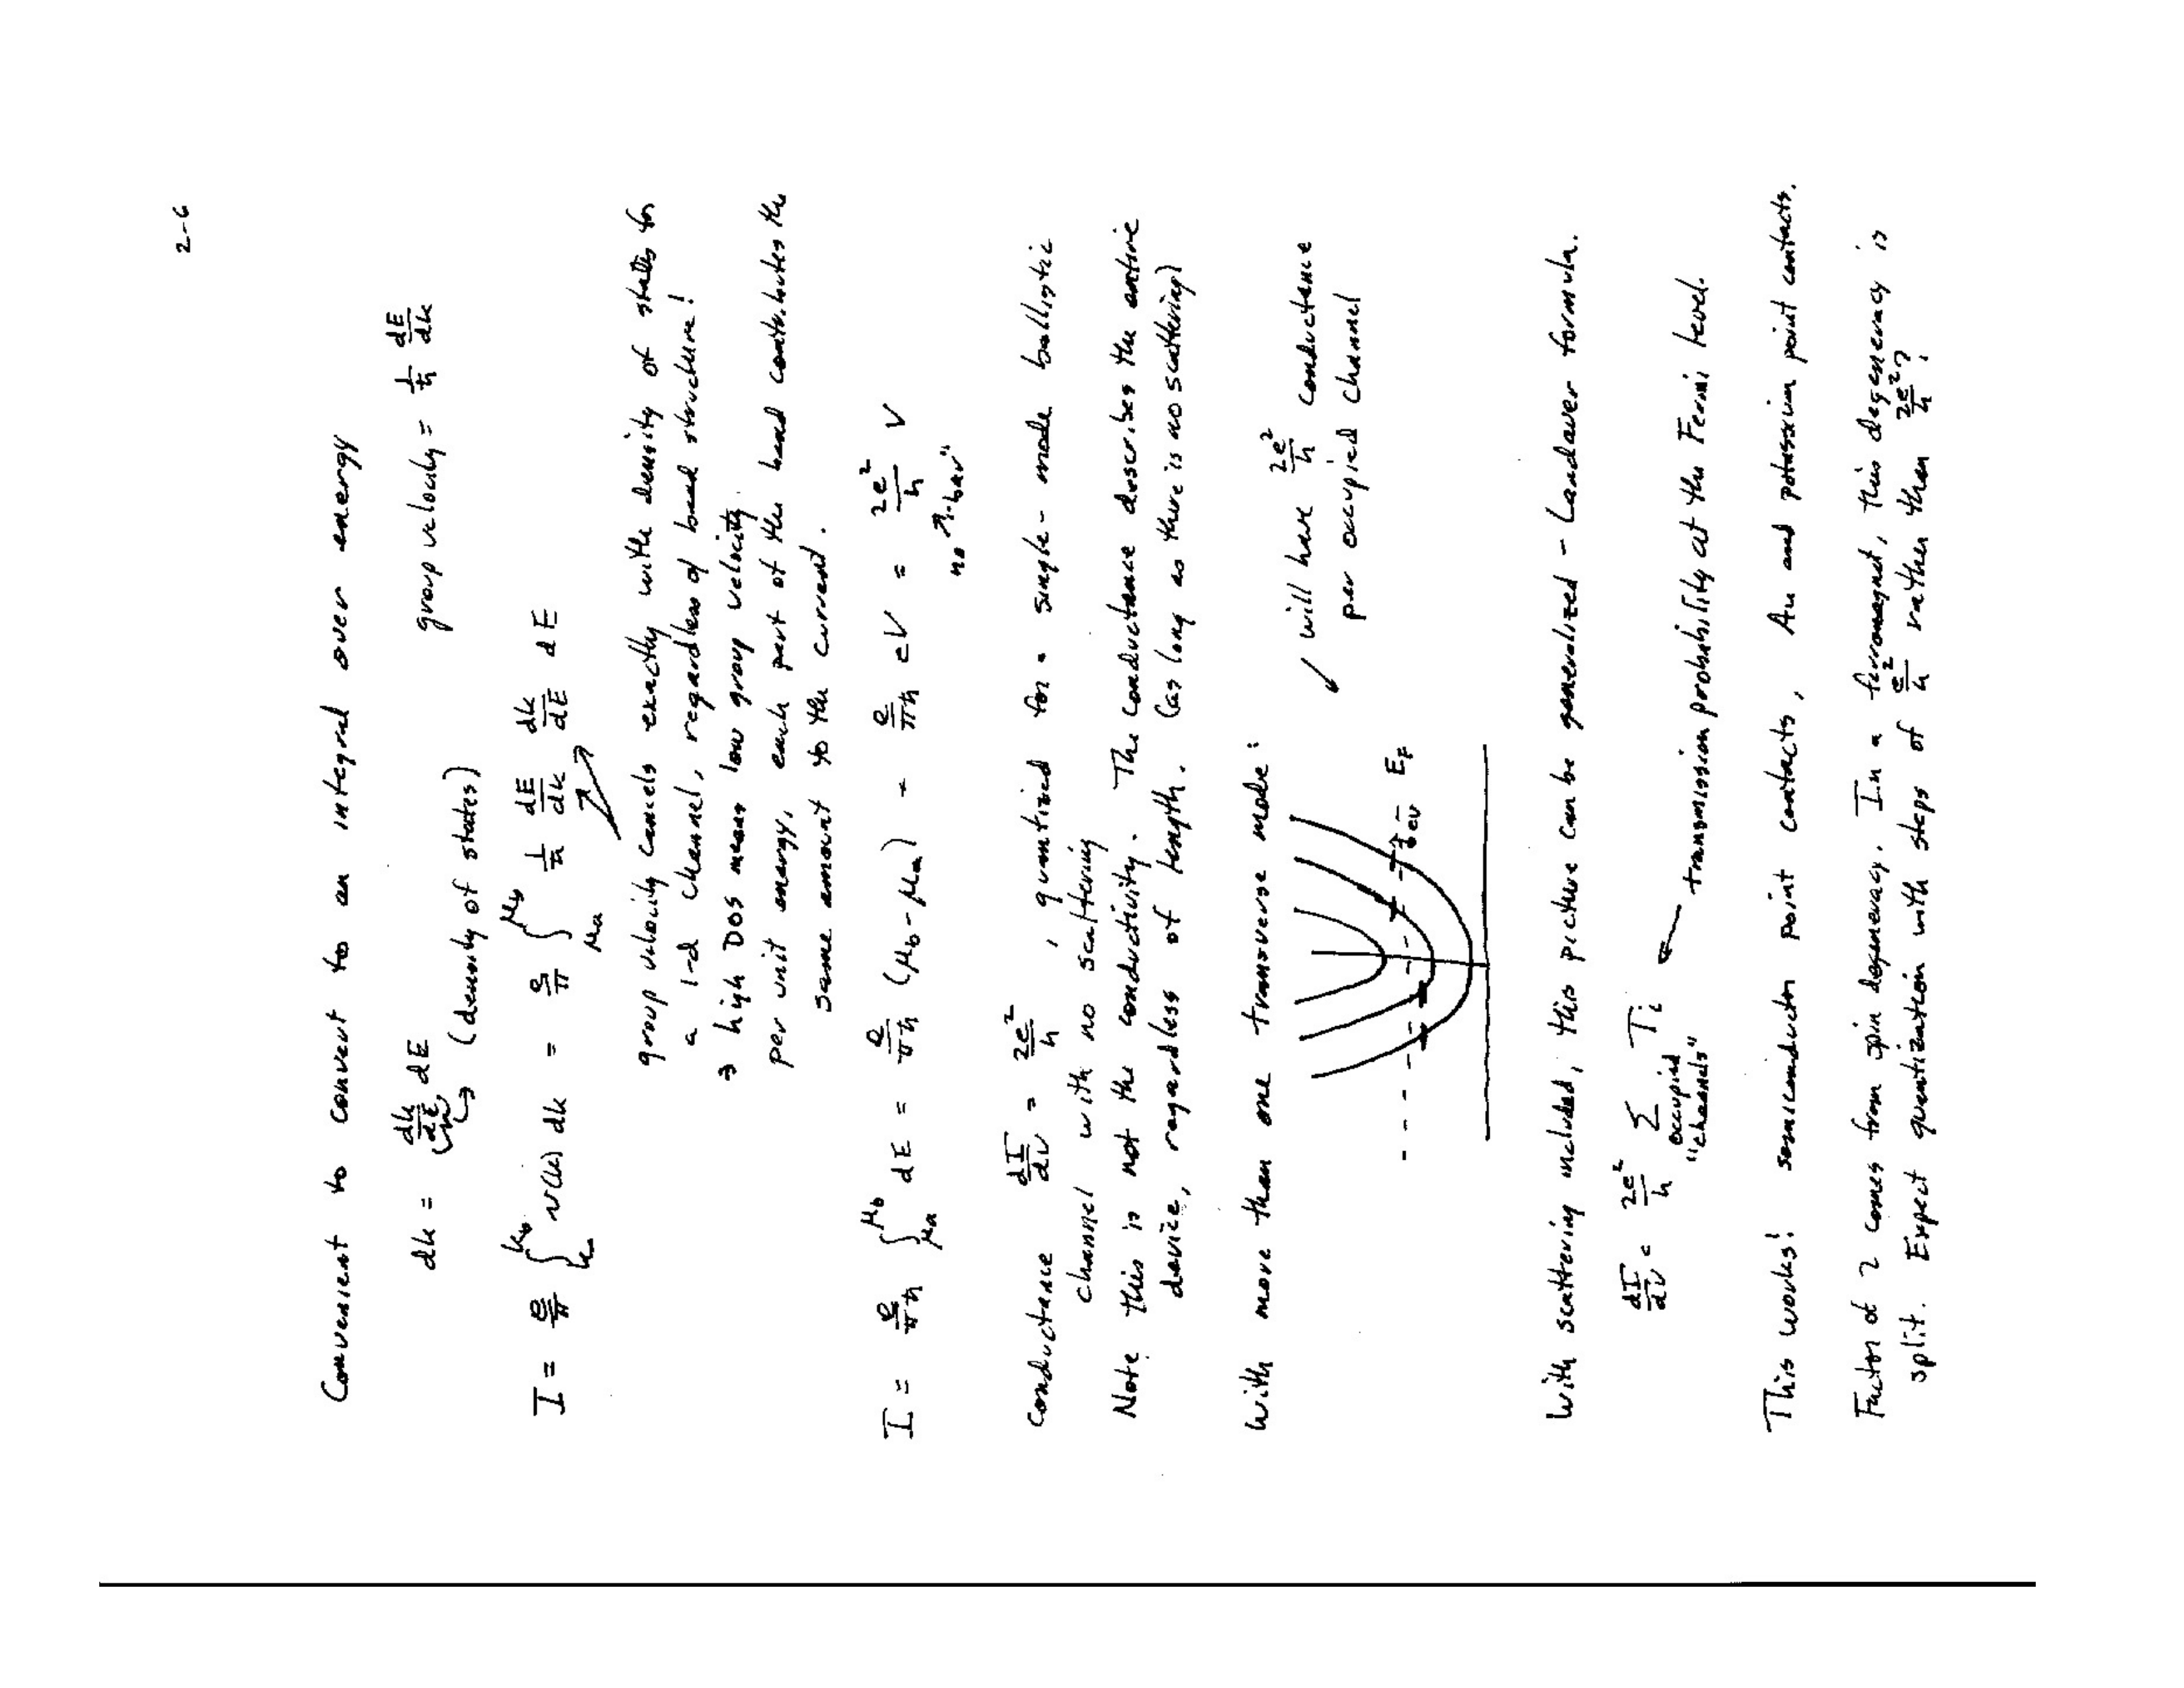 2-6
Convenient to convert to an integral over energy
dk = dk/dE dE group velocity = 1/ħ dE/dk
(density of states)
I = e/π ∫_{ka}^{kb} v(k) dk = e/π ∫_{μa}^{μb} 1/ħ dE/dk dk/dE dE
group velocity cancels exactly with the density of states for
a 1-d channel, regardless of band structure!
→ high DOS means low group velocity
per unit energy, each part of the band contributes the
same amount to the current.
I = e/πħ ∫_{μa}^{μb} dE = e/πħ (μb-μa) = e/πħ eV = 2e²/h V
no "h-bar"
Conductance dI/dV = 2e²/h, quantized for a single-mode ballistic
channel with no scattering
Note this is not the conductivity. The conductance describes the entire
device, regardless of length. (as long as there is no scattering)
With more than one transverse mode:
will have 2e²/h conductance
per occupied channel
E_F
eV
With scattering included, this picture can be generalized - Landauer formula.
dI/dV = 2e²/h Σ Ti
occupied
"channels"
transmission probability at the Fermi level.
This works! semiconductor point contacts, Au and potassium point contacts.
Factor of 2 comes from spin degeneracy. In a ferromagnet, this degeneracy is
split. Expect quantization with steps of e²/h rather than 2e²/h?